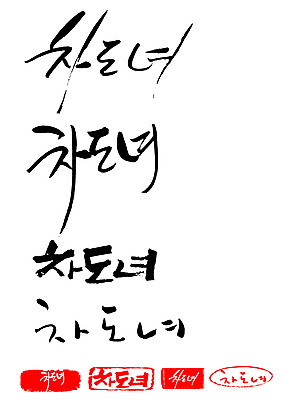 차도녀
차도녀
차도녀
차도녀
차도녀 차도녀 차도녀 차도녀